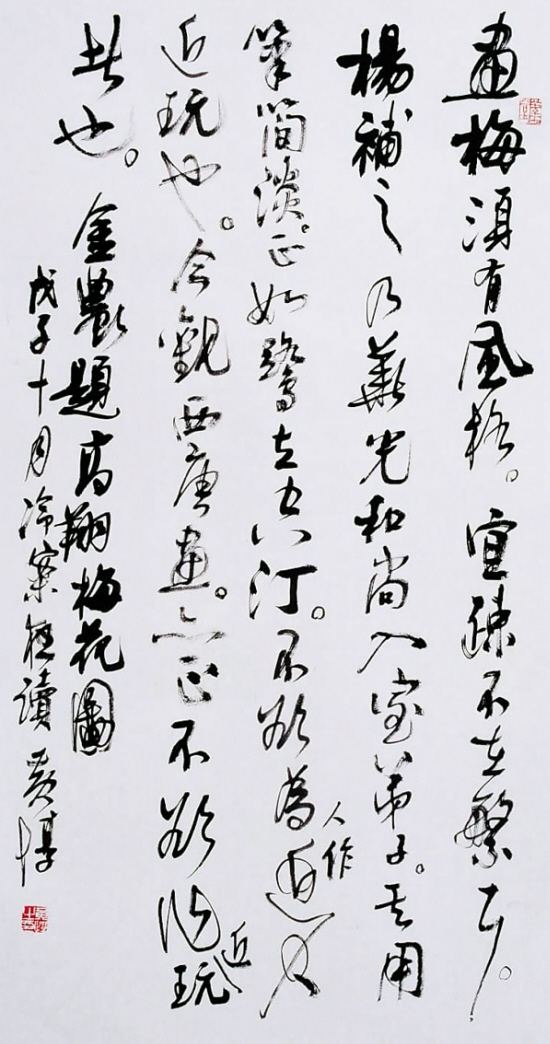 畫梅須有風格。宜疎不在繁耳。
楊補之乃華光和尚入室弟子。其用
筆簡淡。正如鷺立空汀。不欲為人作
近玩也。今觀西唐畫。亦正不欲作近玩
者也。金農題高翔梅花圖
戊子十月冷案讀 黃惇